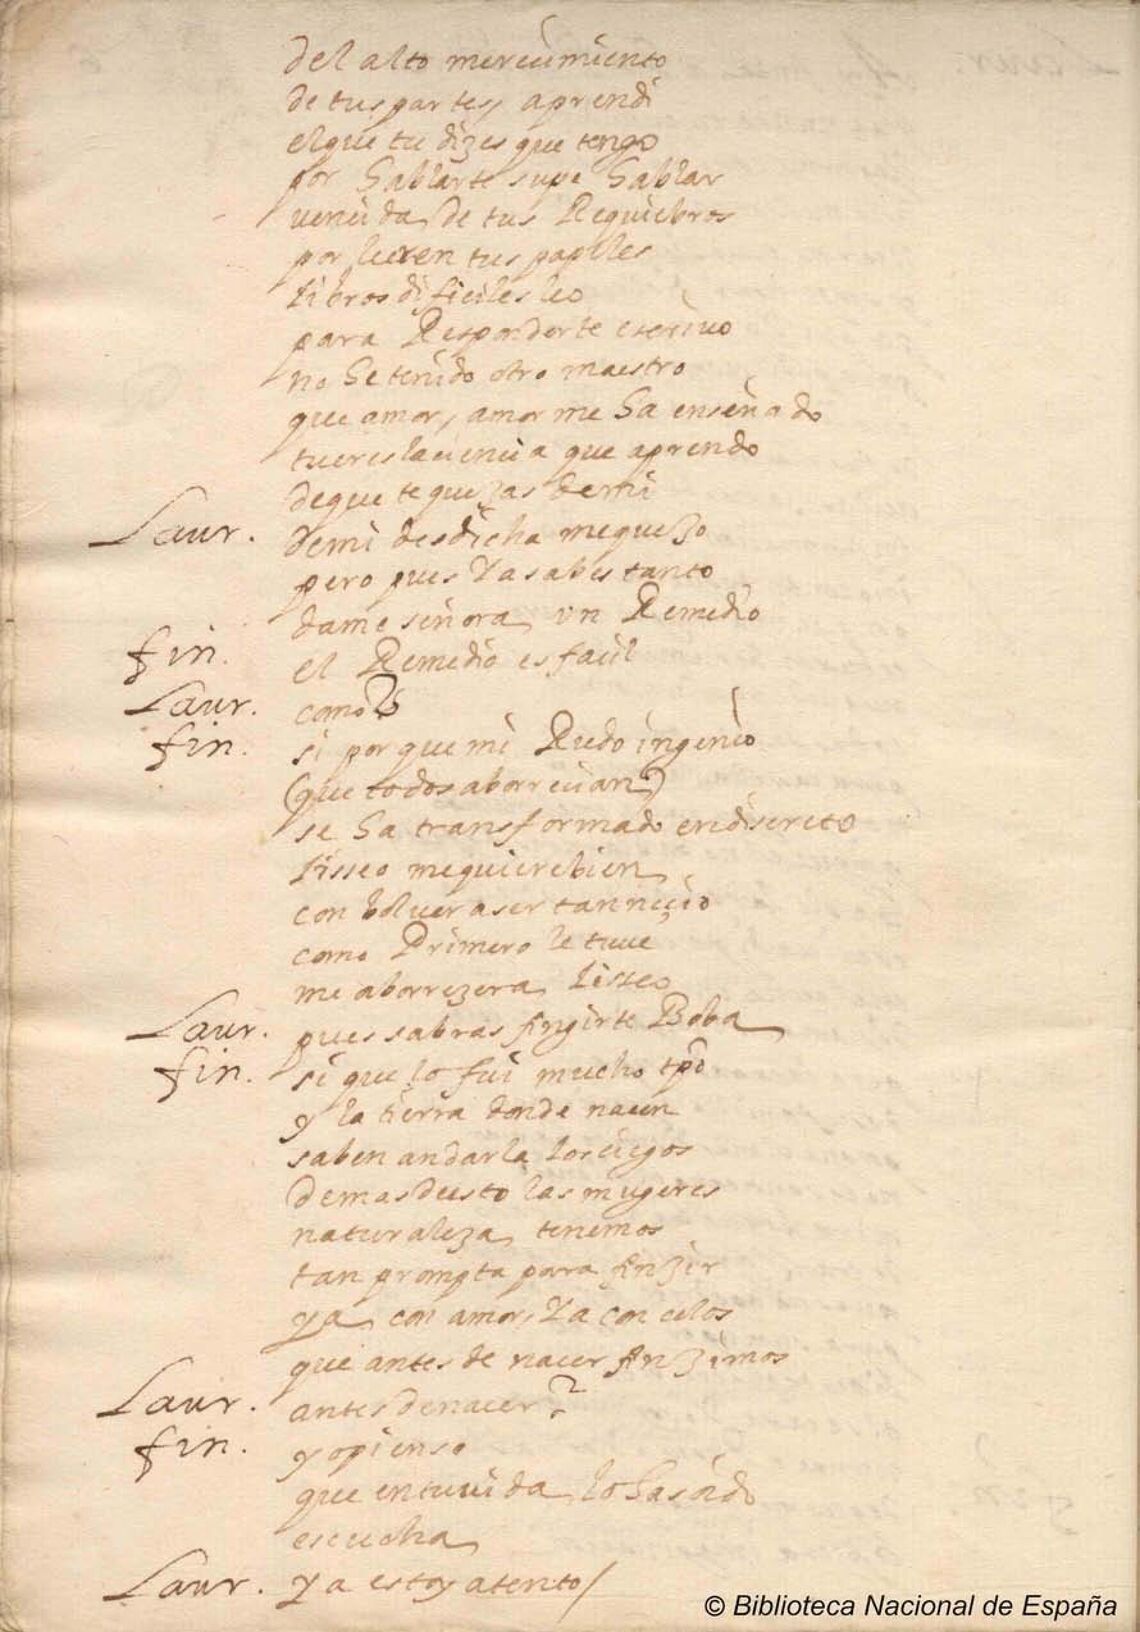 del alto merecimiento
de tus partes, aprendi
el que tu dizes que tengo
por hablarte supe hablar
vencida de tus Requiebros
por leer en tus papeles
libros dificiles leo
para Responderte escrivo
no he tenido otro maestro
que amor, amor me ha enseñado
tu eres la ciencia que aprendo
de que te quexas de mi
Laur. de mi desdicha me quexo
pero pues Ya sabes tanto
dame señora un Remedio
fin. el Remedio es facil
Laur. como?
fin. si por que mi Rudo ingenio
(que todos aborrecian)
se ha transformado en discreto
Lisseo me quiere bien
con bolver a ser tan necio
como Primero le tuve
me aborrezera Lisseo
Laur. pues sabras fingirte Boba
fin. si que lo fui mucho tpo
y la tierra donde nacen
saben andarla los ciegos
demas desto las mugeres
naturaleza tenemos
tan prompta para finxir
ya con amor, Ya con celos
que antes de nacer finximos
Laur. antes de nacer?
fin. yo pienso
que en tu vida lo has oido
escucha
Laur. Ya estoy atento/
© Biblioteca Nacional de España